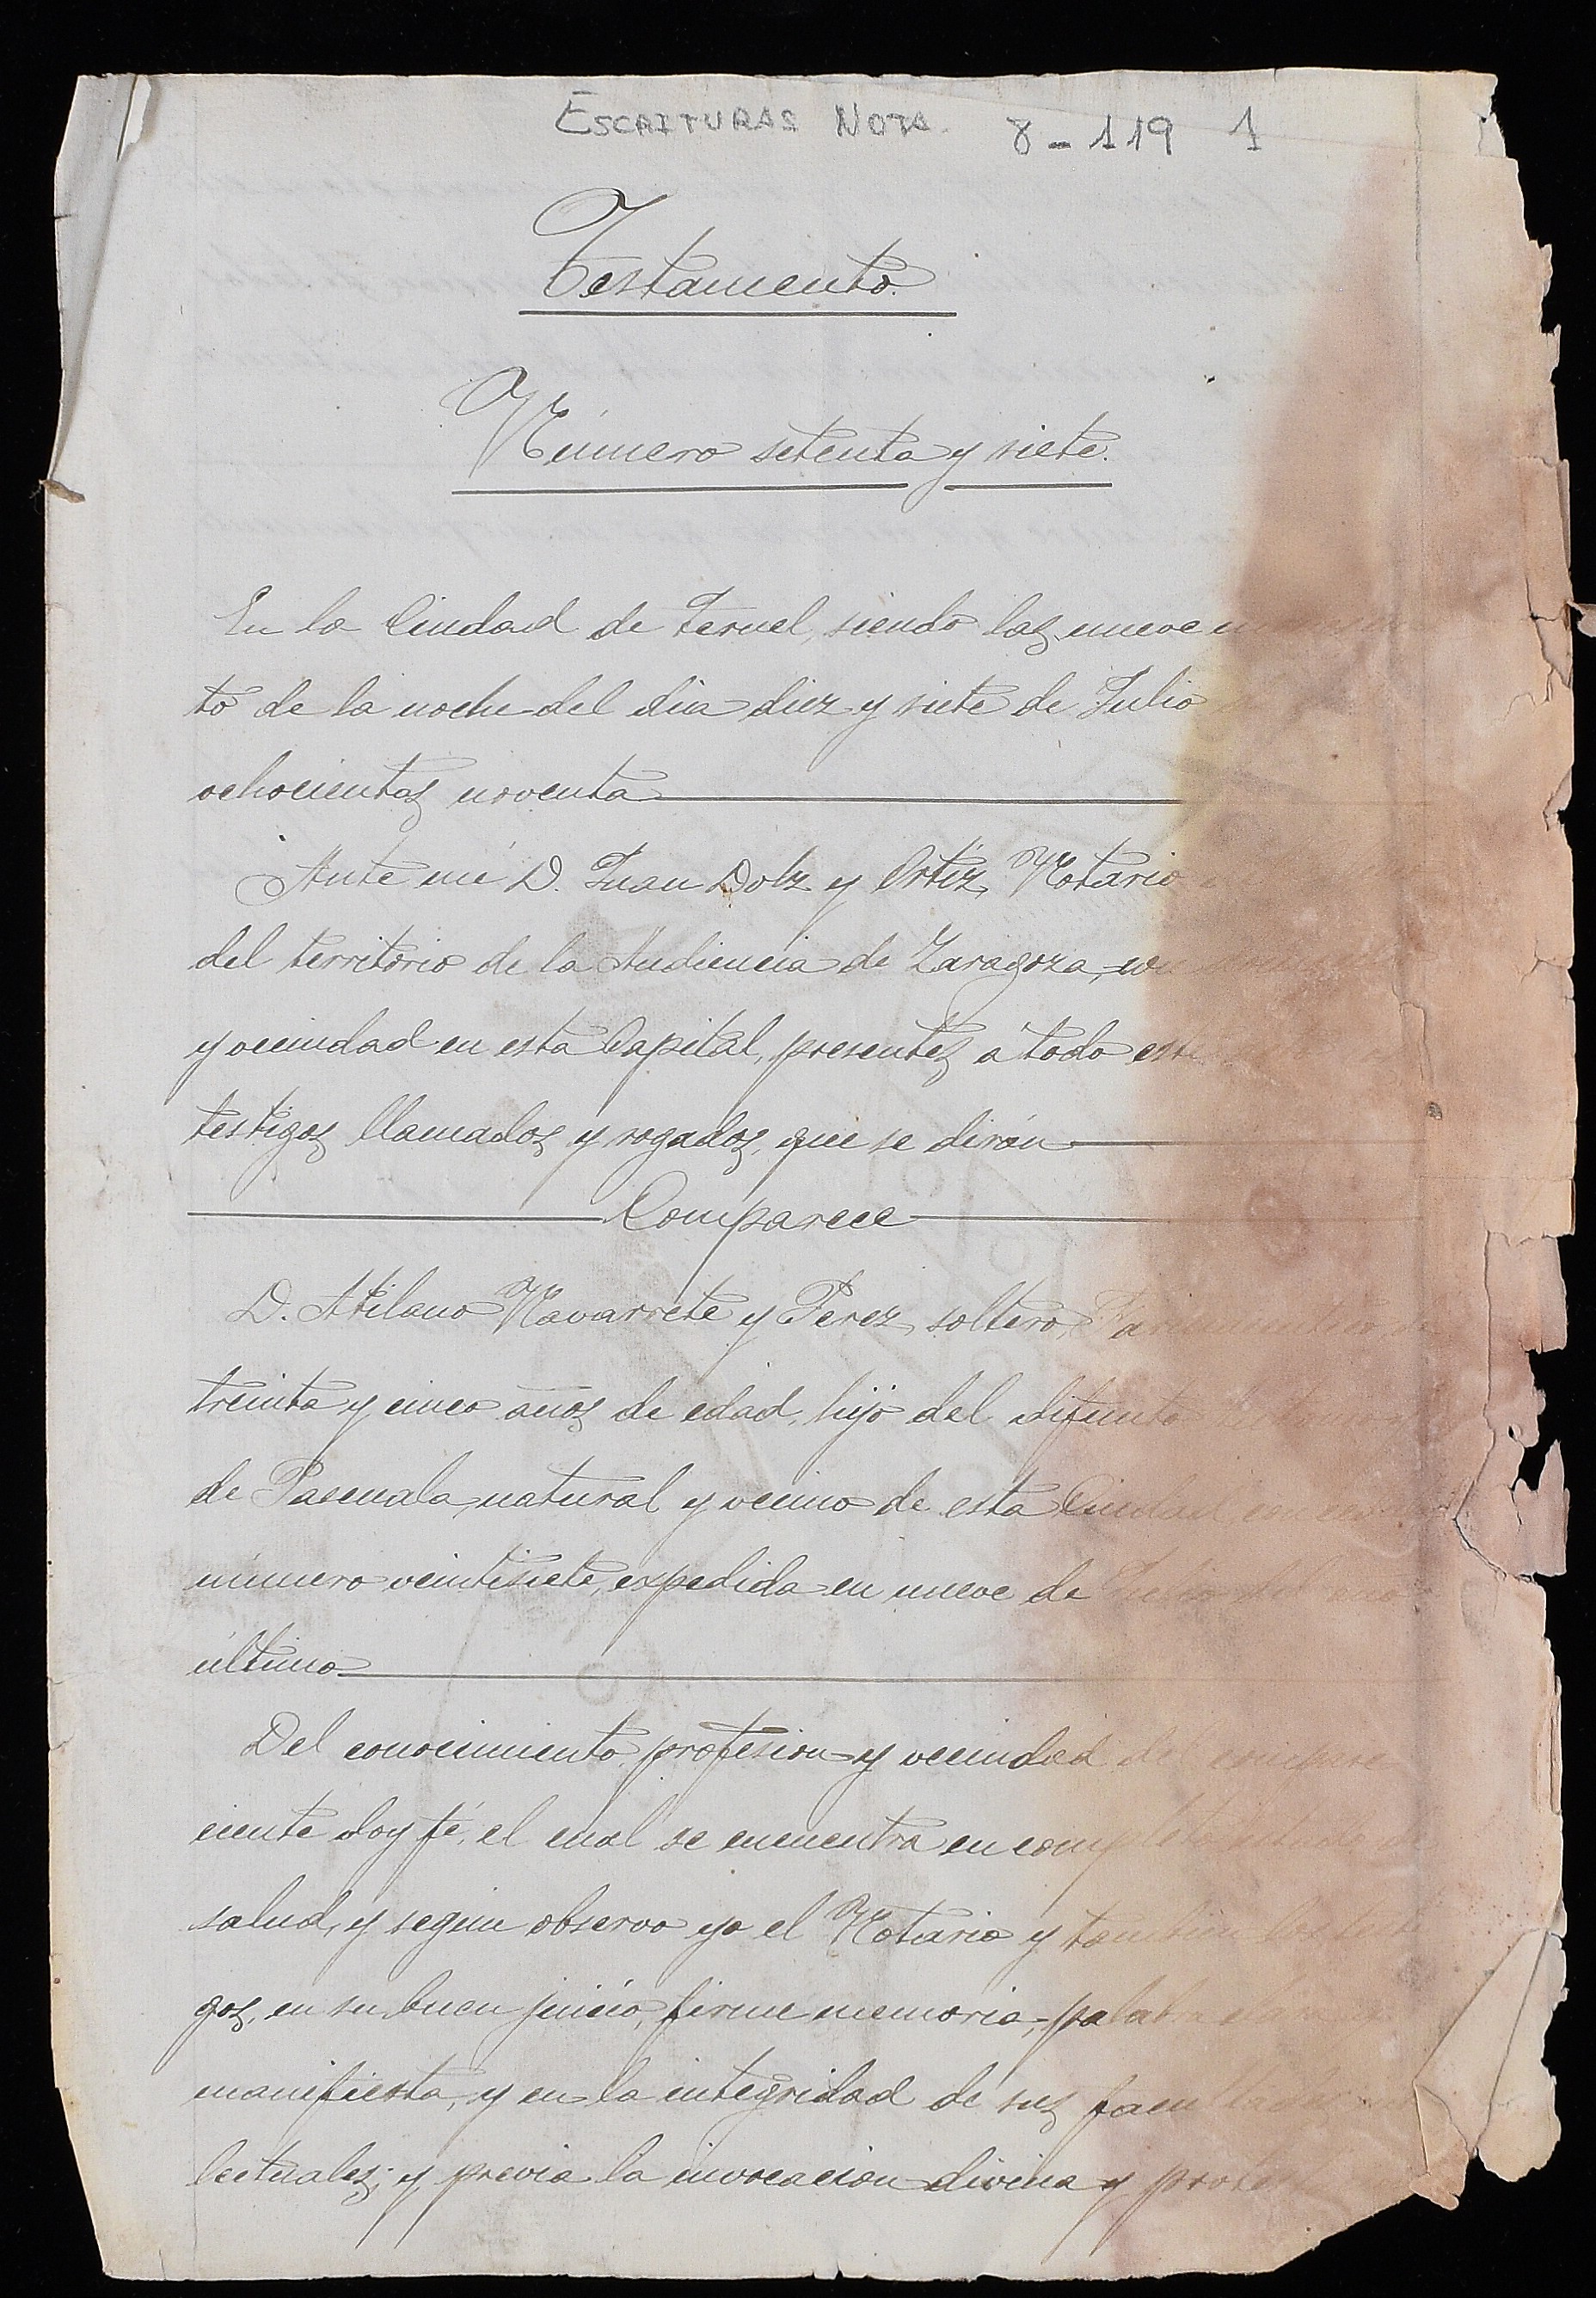 ESCRITURAS NOTA. 8-119 1
Testamento.
Número setenta y siete.
En la Ciudad de Teruel, siendo las nueve
to de la noche del dia diez y siete de Julio
ochocientos noventa
Ante mí D. Juan Dolz y Ortíz, Notario
del territorio de la Audiencia de Zaragoza, con
y vecindad en esta Capital, presentes á todo este
testigos llamados y rogados, que se dirán
Comparece
D. Atilano Navarrete y Perez, soltero,
treinta y cinco años de edad, hijo del difunto
de Pascuala, natural y vecino de esta Ciudad
número veintisiete, expedida en nueve de Julio del
último
Del conocimiento, profesion y vecindad del compare
ciente doy fé, el cual se encuentra en completo estado de
salud, y segun observo yo el Notario y tambien los testi
gos, en su buen juicio, firme memoria, palabra clara y
manifiesta, y en la integridad de sus facultades
lectuales; y previa la invocacion divina y